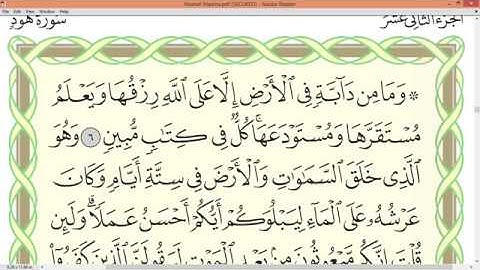 Mushaf Madina.pdf (SECURED) - Adobe Reader
File Edit View Window Help
الجزء الثاني عشر
سورة هود
۞ وَمَا مِن دَآبَّةٍ فِي ٱلْأَرْضِ إِلَّا عَلَى ٱللَّهِ رِزْقُهَا وَيَعْلَمُ
مُسْتَقَرَّهَا وَمُسْتَوْدَعَهَا ۚ كُلٌّ فِي كِتَٰبٍ مُّبِينٍ ٦ وَهُوَ
ٱلَّذِي خَلَقَ ٱلسَّمَٰوَٰتِ وَٱلْأَرْضَ فِي سِتَّةِ أَيَّامٍ وَكَانَ
عَرْشُهُۥ عَلَى ٱلْمَآءِ لِيَبْلُوَكُمْ أَيُّكُمْ أَحْسَنُ عَمَلًا ۗ وَلَئِن
قُلْتَ إِنَّكُم مَّبْعُوثُونَ مِنۢ بَعْدِ ٱلْمَوْتِ لَيَقُولَنَّ ٱلَّذِينَ كَفَرُوٓا۟